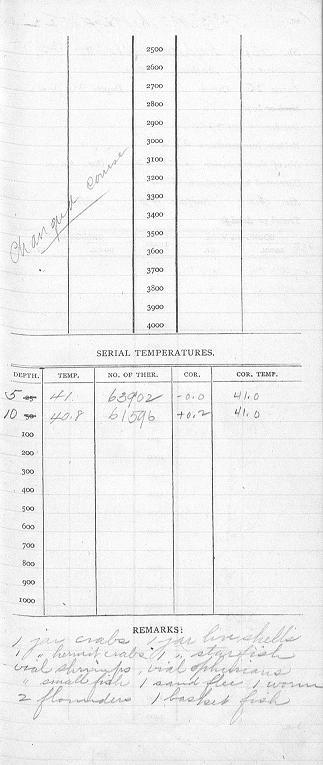 2500
2600
2700
2800
2900
3000
3100
3200
3300
3400
3500
3600
3700
3800
3900
4000
Changed course
SERIAL TEMPERATURES.
DEPTH. TEMP. NO. OF THER. COR. COR. TEMP.
5 25 41. 63902 -0.0 41.0
10 50 40.8 61596 +0.2 41.0
100
200
300
400
500
600
700
800
900
1000
REMARKS:
1 jar crabs 1 jar live shells
1 " hermit crabs 1 " starfish
vial shrimps, vial ophiurians
" small fish 1 sand flee 1 worm
2 flounders 1 basket fish